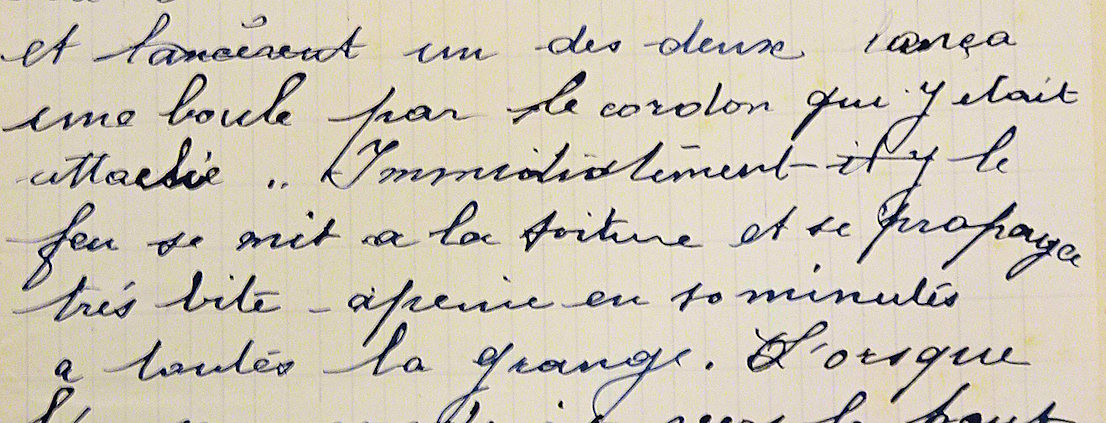 et lancèrent un des deux lança
une boule par le cordon qui y etait
attachée .. Immédiatement il y le
feu se mit a la toiture et se propagea
trés vite - apeine en 10 minutés
a toutés la grange. L'orsque
vers le haut